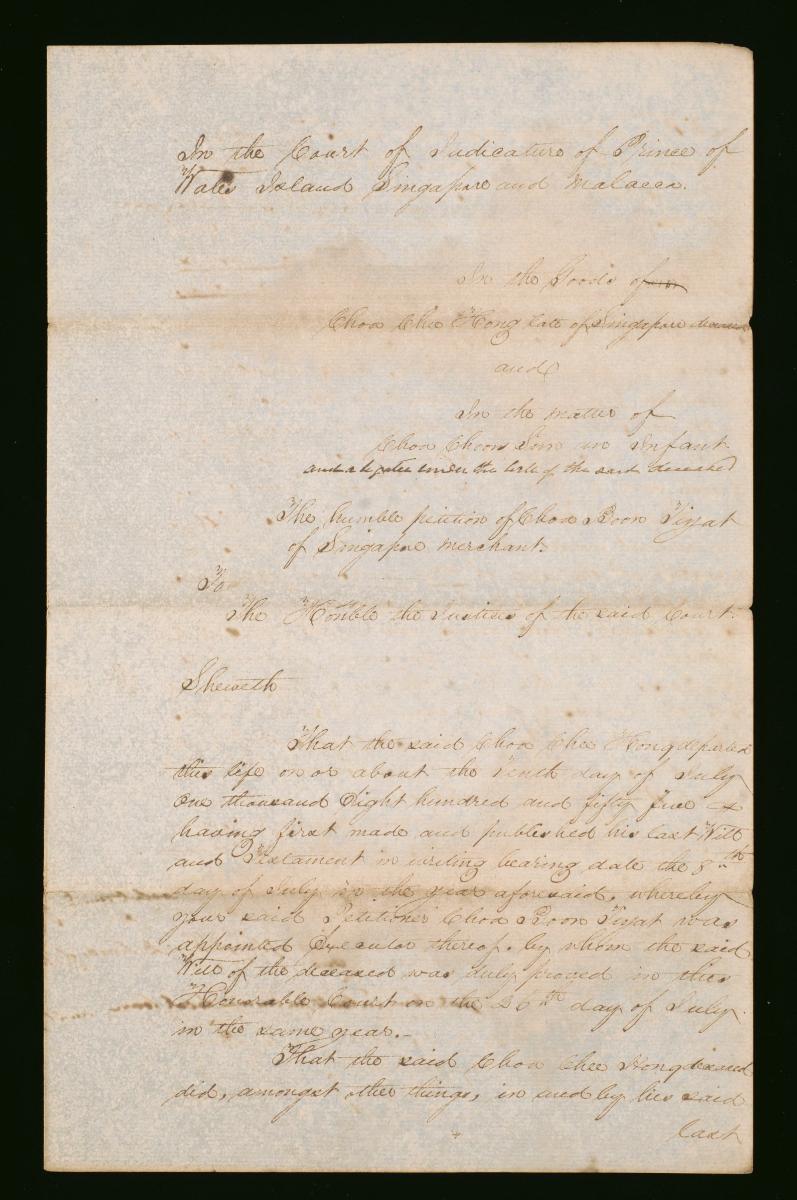 In the Court of Judicature of Prince of
Wales Island Singapore and Malacca.
In the Goods of
Choa Chee Hong late of Singapore deceased
and
In the matter of
Choa Choon Sim an Infant
and a legatee under the will of the said deceased
The humble petition of Choa Boon Tiyat
of Singapore Merchant.
To
The Honble the Justices of the said Court.
Sheweth
That the said Choa Chee Hong departed
this life on or about the Tenth day of July
One thousand Eight hundred and fifty five
having first made and published his last Will
and Testament in writing bearing date the 8th
day of July in the year aforesaid, whereby
your said Petitioner Choa Boon Tiyat was
appointed Executor thereof, by whom the said
Will of the deceased was duly proved in this
Honorable Court on the 26th day of July
in the same year.-
That the said Choa Chee Hong deceased
did, amongst other things, in and by his said
Last